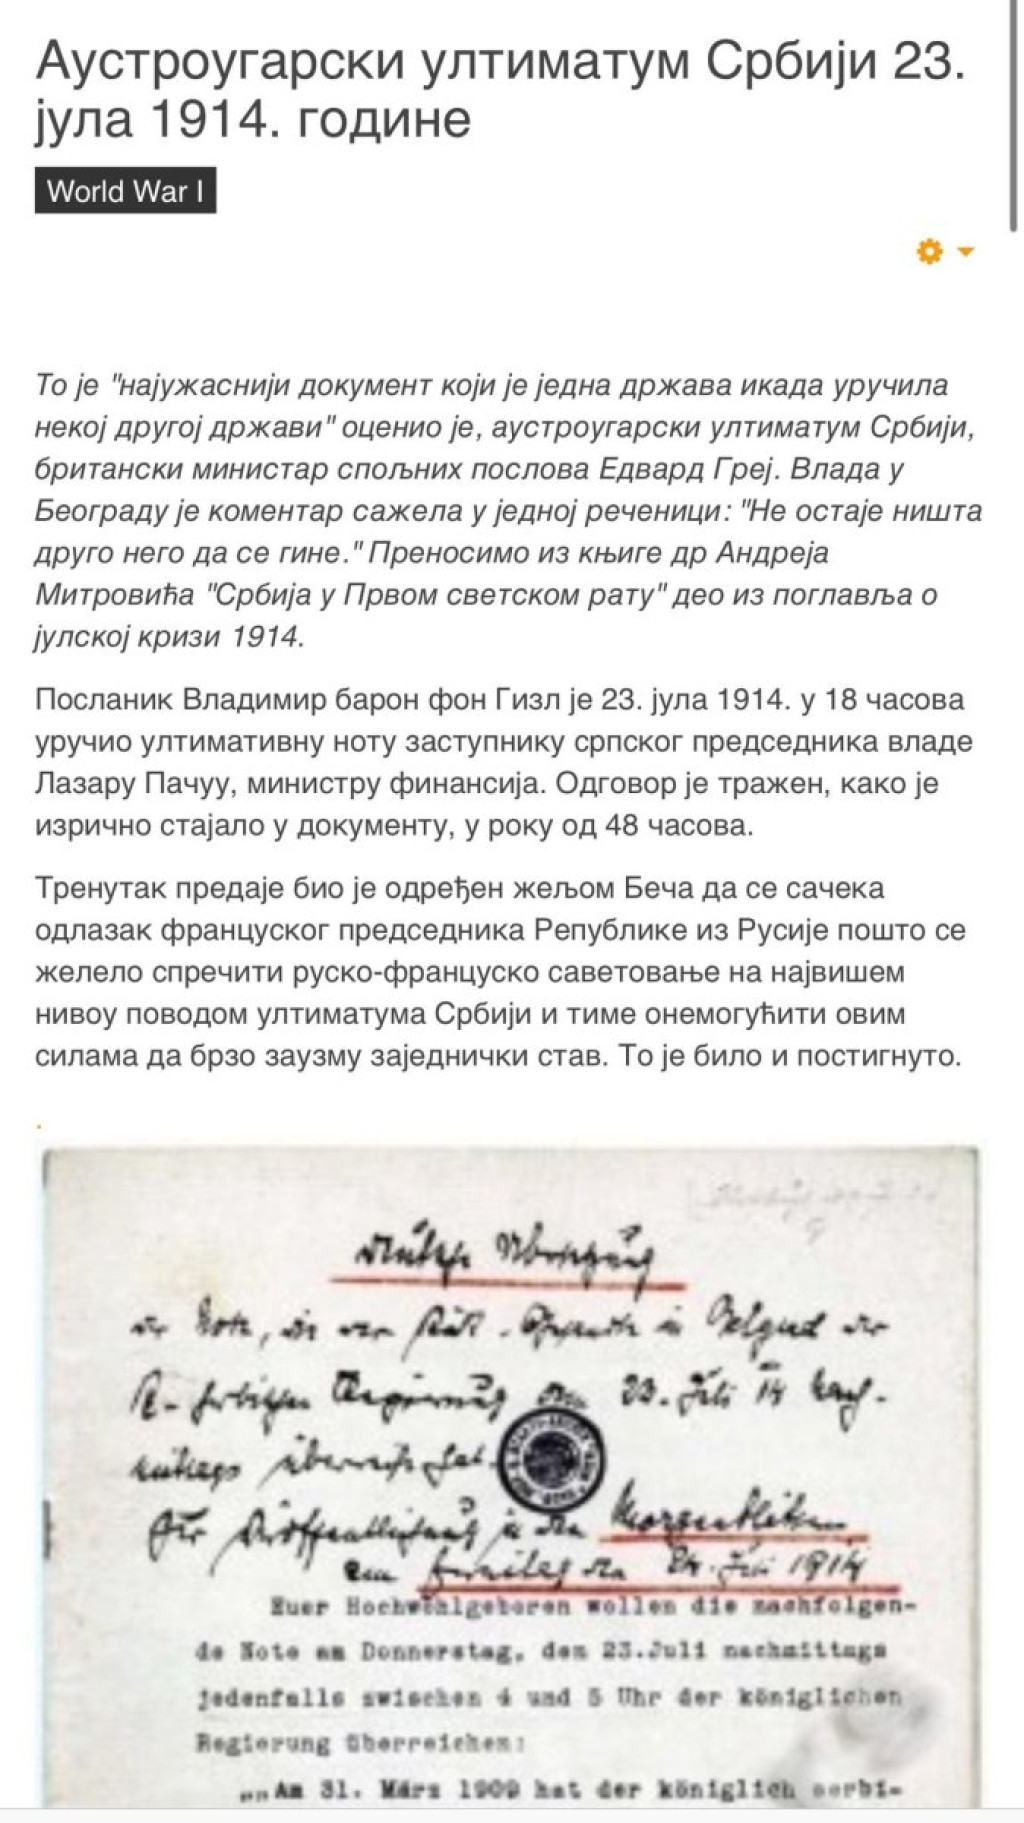 Аустроугарски ултиматум Србији 23.
јула 1914. године
World War I
То је "најужаснији документ који је једна држава икада уручила
некој другој држави" оценио је, аустроугарски ултиматум Србији,
британски министар спољних послова Едвард Греј. Влада у
Београду је коментар сажела у једној реченици: "Не остаје ништа
друго него да се гине." Преносимо из књиге др Андреја
Митровића "Србија у Првом светском рату" део из поглавља о
јулској кризи 1914.
Посланик Владимир барон фон Гизл је 23. јула 1914. у 18 часова
уручио ултимативну ноту заступнику српског председника владе
Лазару Пачуу, министру финансија. Одговор је тражен, како је
изрично стајало у документу, у року од 48 часова.
Тренутак предаје био је одређен жељом Беча да се сачека
одлазак француског председника Републике из Русије пошто се
желело спречити руско-француско саветовање на највишем
нивоу поводом ултиматума Србији и тиме онемогућити овим
силама да брзо заузму заједнички став. То је било и постигнуто.
Deutsche Übersetzung
der Note, die der in Belgrad der
K. serbischen Regierung am 23. Juli 14 nach-
mittags überreicht hat.
Zur Veröffentlichung in den Morgenblättern
am Freitag den 24. Juli 1914
Euer Hochwohlgeboren wollen die nachfolgen-
de Note am Donnerstag, den 23.Juli nachmittags
jedenfalls zwischen 4 und 5 Uhr der königlichen
Regierung überreichen:
„„Am 31. März 1909 hat der königlich serbi-